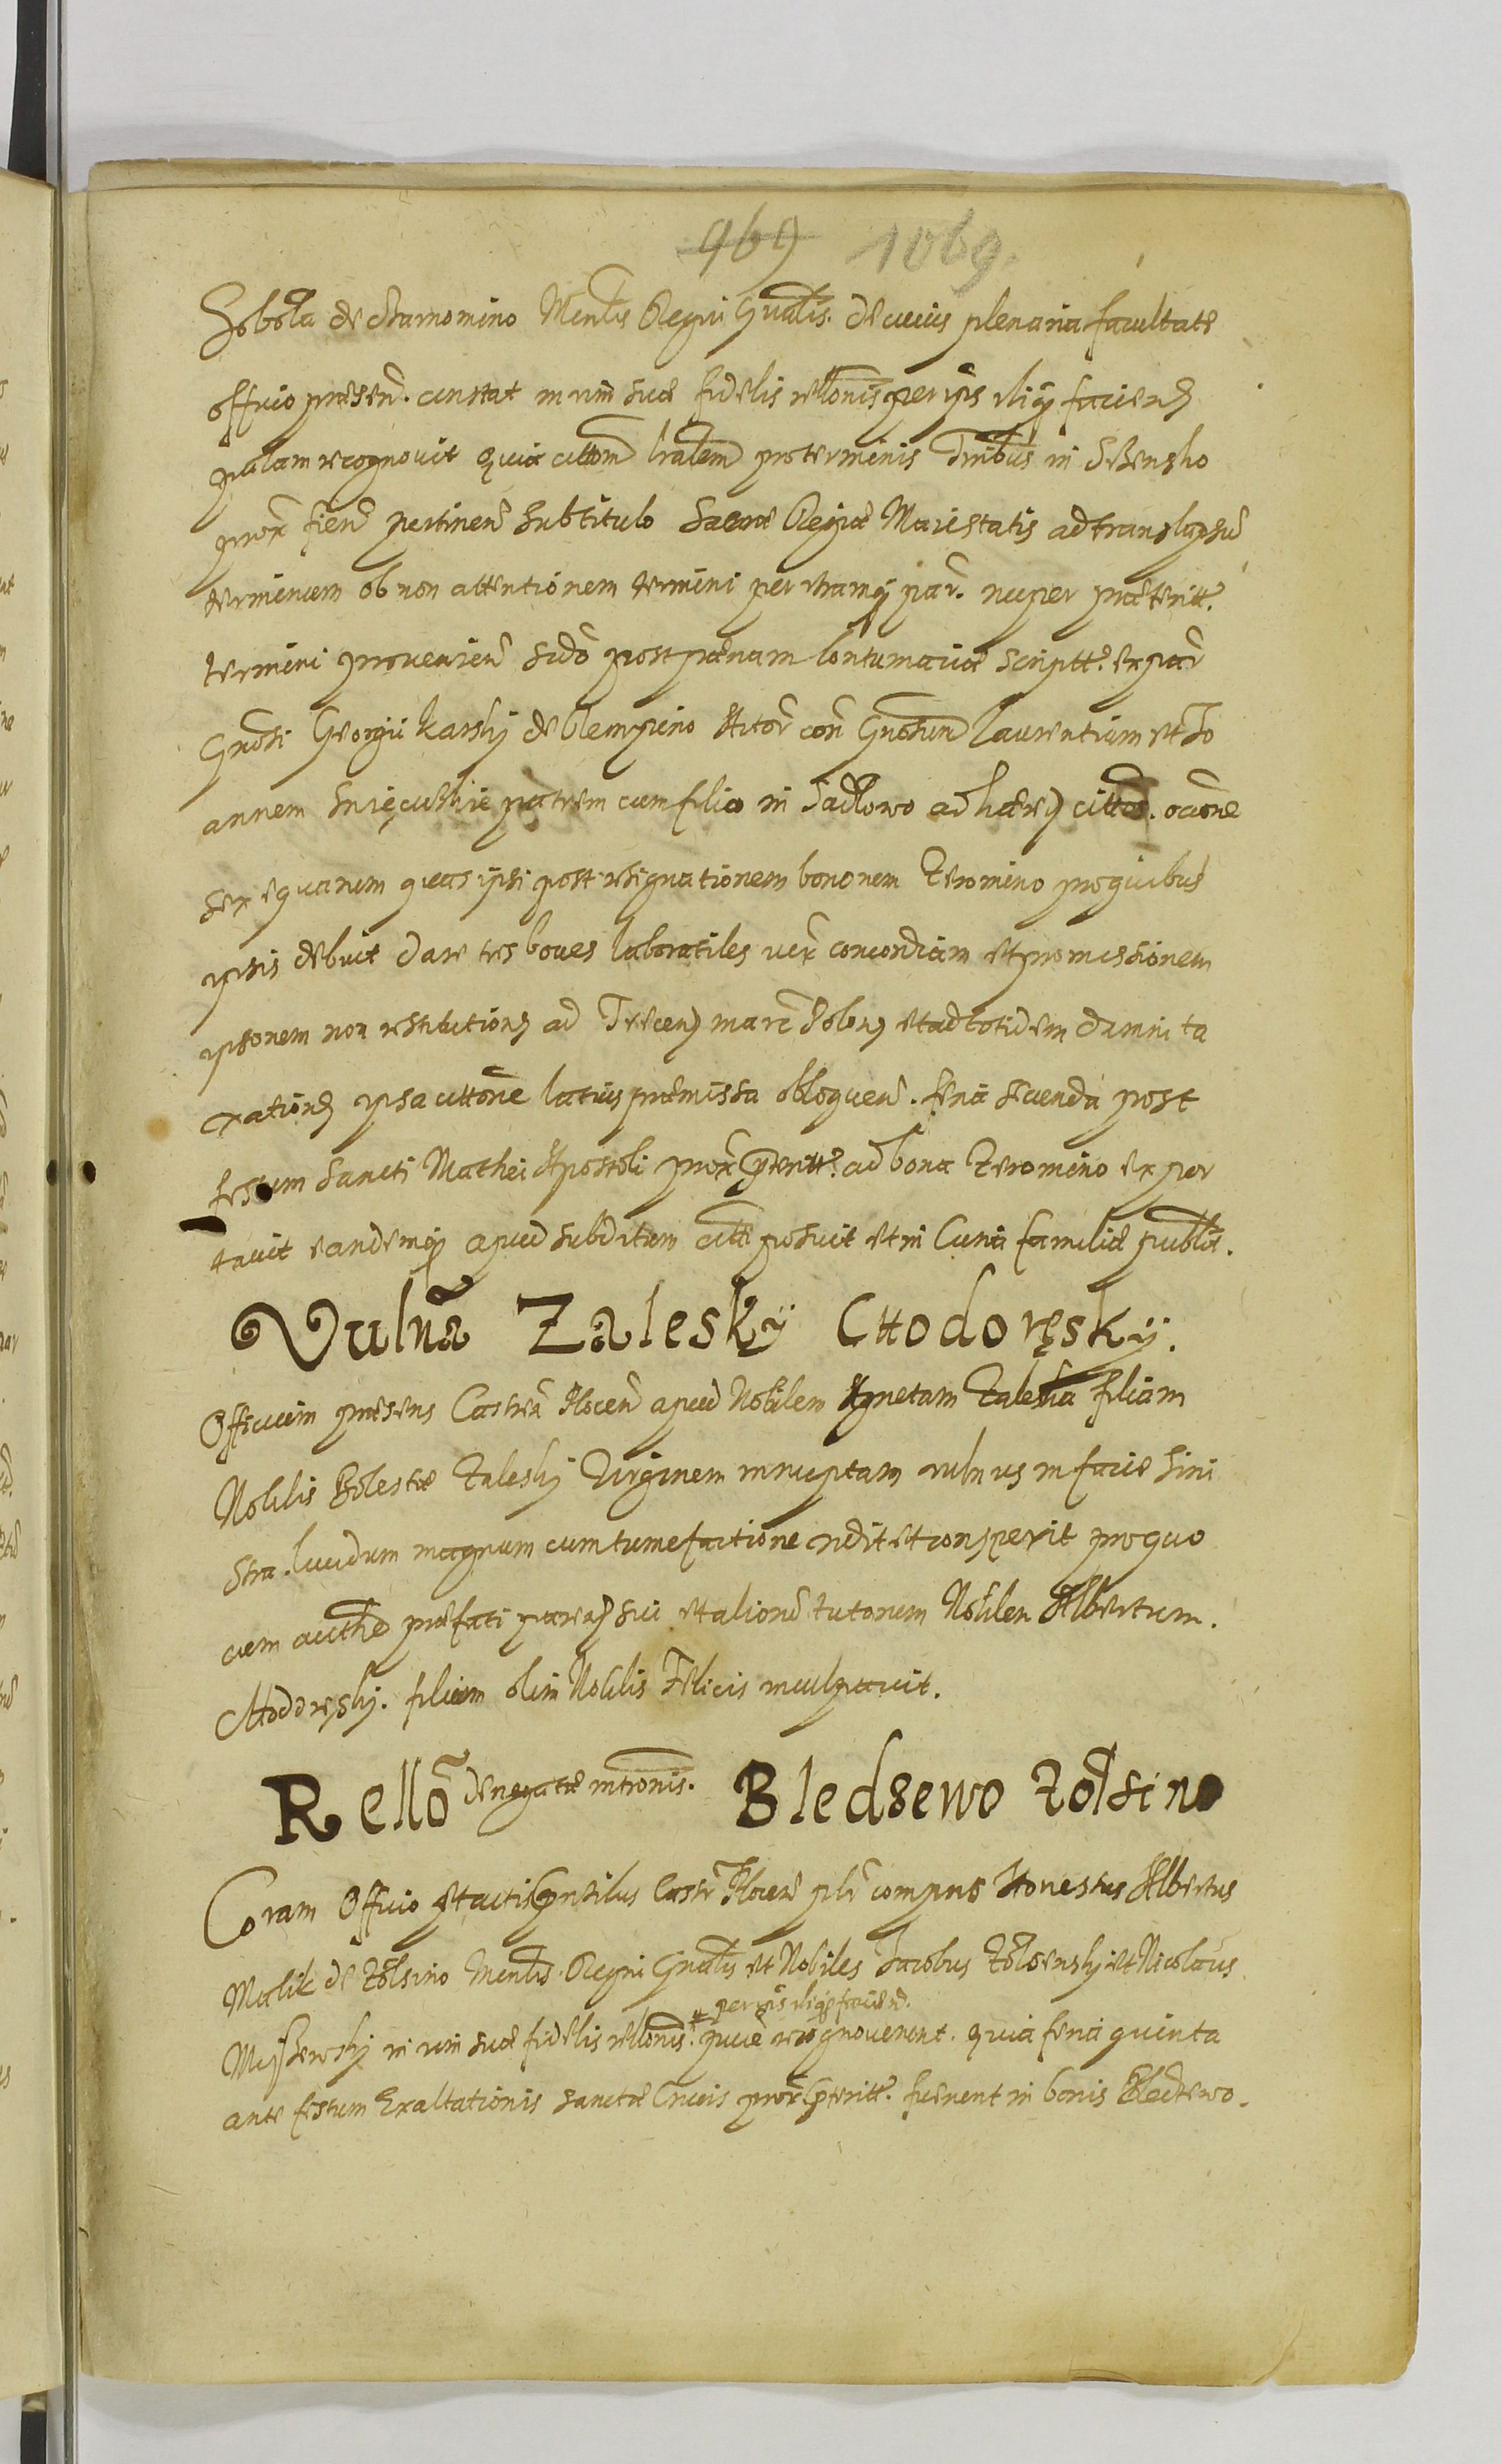 969 1069.
Sobola de Charnomino Menlis Regni Gnalis. de cuius plenaria facultate
officio præsen. constat in vim suæ fidelis rellonis per ipsum aliq facien
palam recognovit quia citton lralem pro terminis Tribus in Szrensko
prox fien pertinen sub titulo Sacræ Regiæ Maiestatis ad translapsu
terminum ob non attentionem termini per utramq par. nuper præteritt.
termini provenien sido post pænam contumaciæ scriptt. ex par
Gnosi Georgii Karsky de Clempino Actor con Gnosum Laurentium et Jo
annem Snięcuskie patrem cum filio in Sadlowo ad hæred cittos. ocone
sex equarum quas ipsi post resignationem bonorum Zeromino pro quibus
ipsis debuit dare tres boves laboratiles iux concordiam et promissionem
ipsorum non restitution ad Trecen marc Polon et ad totidem damni ta
xation ipsa cittone latius præmissa obloquen. feria secunda post
festum Sancti Mathei Apostoli prox præteritt. ad bona Zeromino expor
tavit eandemq apud subditum ibidem posuit et in Curia familiæ publit.
Vulna Zalesky Chodoręsky.
Officium præsens Castren Plocen apud Nobilem Agnetam Zaleska filiam
Nobilis Bolestæ Zalesky Virginem innuptam vulnus in facie sini
stra. lividum magnum cum tumefactione vidit et conspexit pro quo
cum authe præfati paren sui et alioru tutorum Nobilem Albertum.
Chodoręsky. filium olim Nobilis Felicis inculpavit.
Rello denegatæ intronis. Bledzewo Zolsino
Coram Officio et actis præntibus Castr Plocen plr compns Honestus Albertus
Malik de Zolsino Menlis. Regni Gnalis et Nobiles Jacobus Zolsensky et Nicolaus
# per ipsos aliqfacien.
Myszewsky in vim suæ fidelis rellonis. # quiæ recognoverunt. quia feria quinta
ante festum Exaltationis Sanctæ Crucis prox præteritt. fuerunt in bonis Bledzewo.